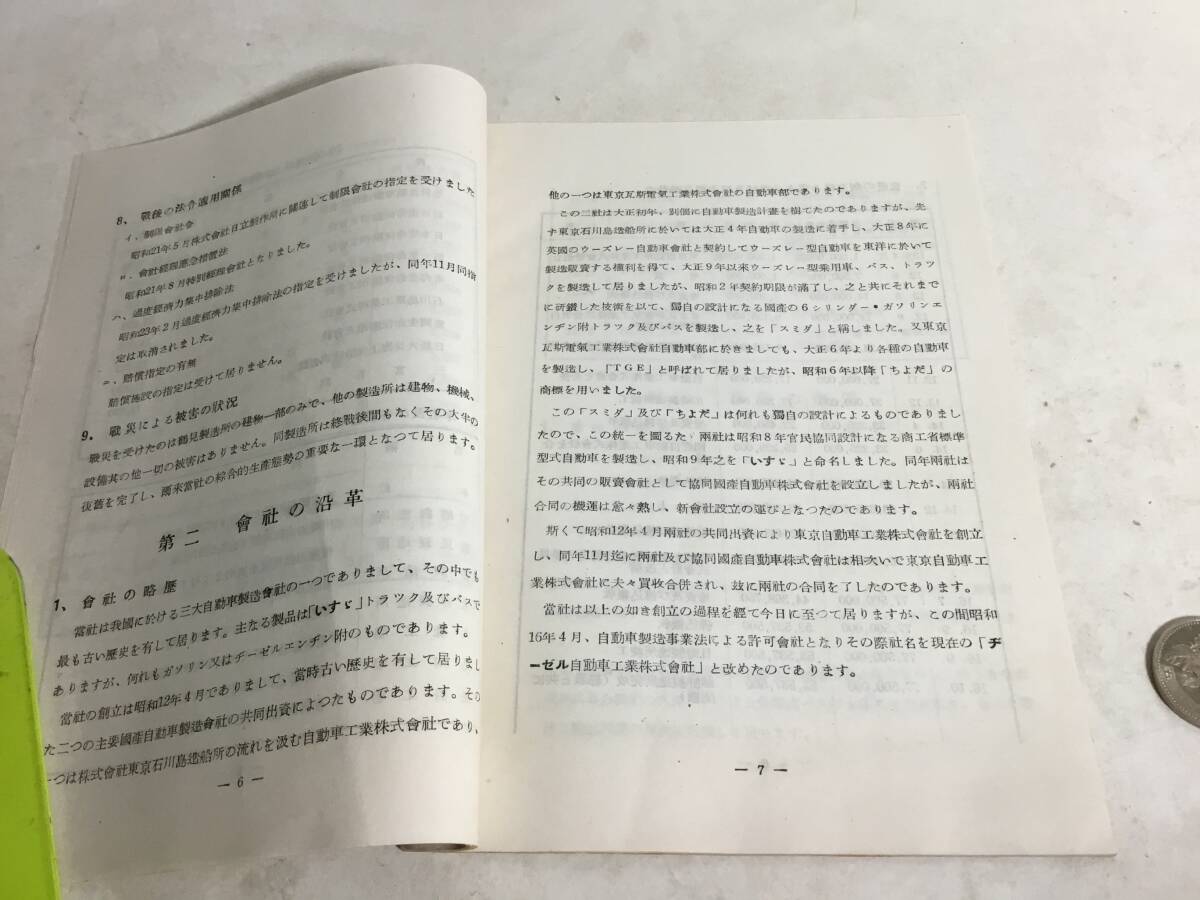 8、戰後の法令適用關係
イ、制限會社令
昭和21年5月株式會社日立製作所に關連して制限會社の指定を受けました
ロ、會社經理應急措置法
昭和21年8月特別經理會社となりました。
ハ、過度經濟力集中排除法
昭和23年2月過度經濟力集中排除法の指定を受けましたが、同年11月同指
定は取消されました。
ニ、賠償指定の有無
賠償施設の指定は受けて居りません。
9、戰災による被害の狀況
戰災を受けたのは鶴見製造所の建物一部のみで、他の製造所は建物、機械、
設備其の他一切の被害はありません。同製造所は終戰後間もなくその大半の
復舊を完了し、爾來當社の綜合的生產態勢の重要な一環となつて居ります。
第二 會社の沿革
1、會社の略歷
當社は我國に於ける三大自動車製造會社の一つでありまして、その中でも
最も古い歷史を有して居ります。主なる製品は「いすゞ」トラツク及びバスで
ありますが、何れもガソリン又はヂーゼルエンヂン附のものであります。
當社の創立は昭和12年4月でありまして、當時古い歷史を有して居りまし
た二つの主要國產自動車製造會社の共同出資によつたものであります。その
一つは株式會社東京石川島造船所の流れを汲む自動車工業株式會社であり、
— 6 —
他の一つは東京瓦斯電氣工業株式會社の自動車部であります。
この二社は大正初年、別個に自動車製造計畫を樹てたのでありますが、先
ず東京石川島造船所に於いては大正4年自動車の製造に着手し、大正8年に
英國のウーズレー自動車會社と契約してウーズレー型自動車を東洋に於いて
製造販賣する權利を得て、大正9年以來ウーズレー型乘用車、バス、トラツ
クを製造して居りましたが、昭和2年契約期限が滿了し、之と共にそれまで
に硏鑽した技術を以て、獨自の設計になる國產の6シリンダー・ガソリンエ
ンヂン附トラツク及びバスを製造し、之を「スミダ」と稱しました。又東京
瓦斯電氣工業株式會社自動車部に於きましても、大正6年より各種の自動車
を製造し、「TGE」と呼ばれて居りましたが、昭和6年以降「ちよだ」の
商標を用いました。
この「スミダ」及び「ちよだ」は何れも獨自の設計によるものでありまし
たので、この統一を圖るため兩社は昭和8年官民協同設計になる商工省標準
型式自動車を製造し、昭和9年之を「いすゞ」と命名しました。同年兩社は
その共同の販賣會社として協同國產自動車株式會社を設立しましたが、兩社
合同の機運は愈々熟し、新會社設立の運びとなつたのであります。
斯くて昭和12年4月兩社の共同出資により東京自動車工業株式會社を創立
し、同年11月迄に兩社及び協同國產自動車株式會社は相次いで東京自動車工
業株式會社に夫々買收合併され、玆に兩社の合同を了したのであります。
當社は以上の如き創立の過程を經て今日に至つて居りますが、この間昭和
16年4月、自動車製造事業法による許可會社となりその際社名を現在の「ヂ
ーゼル自動車工業株式會社」と改めたのであります。
— 7 —